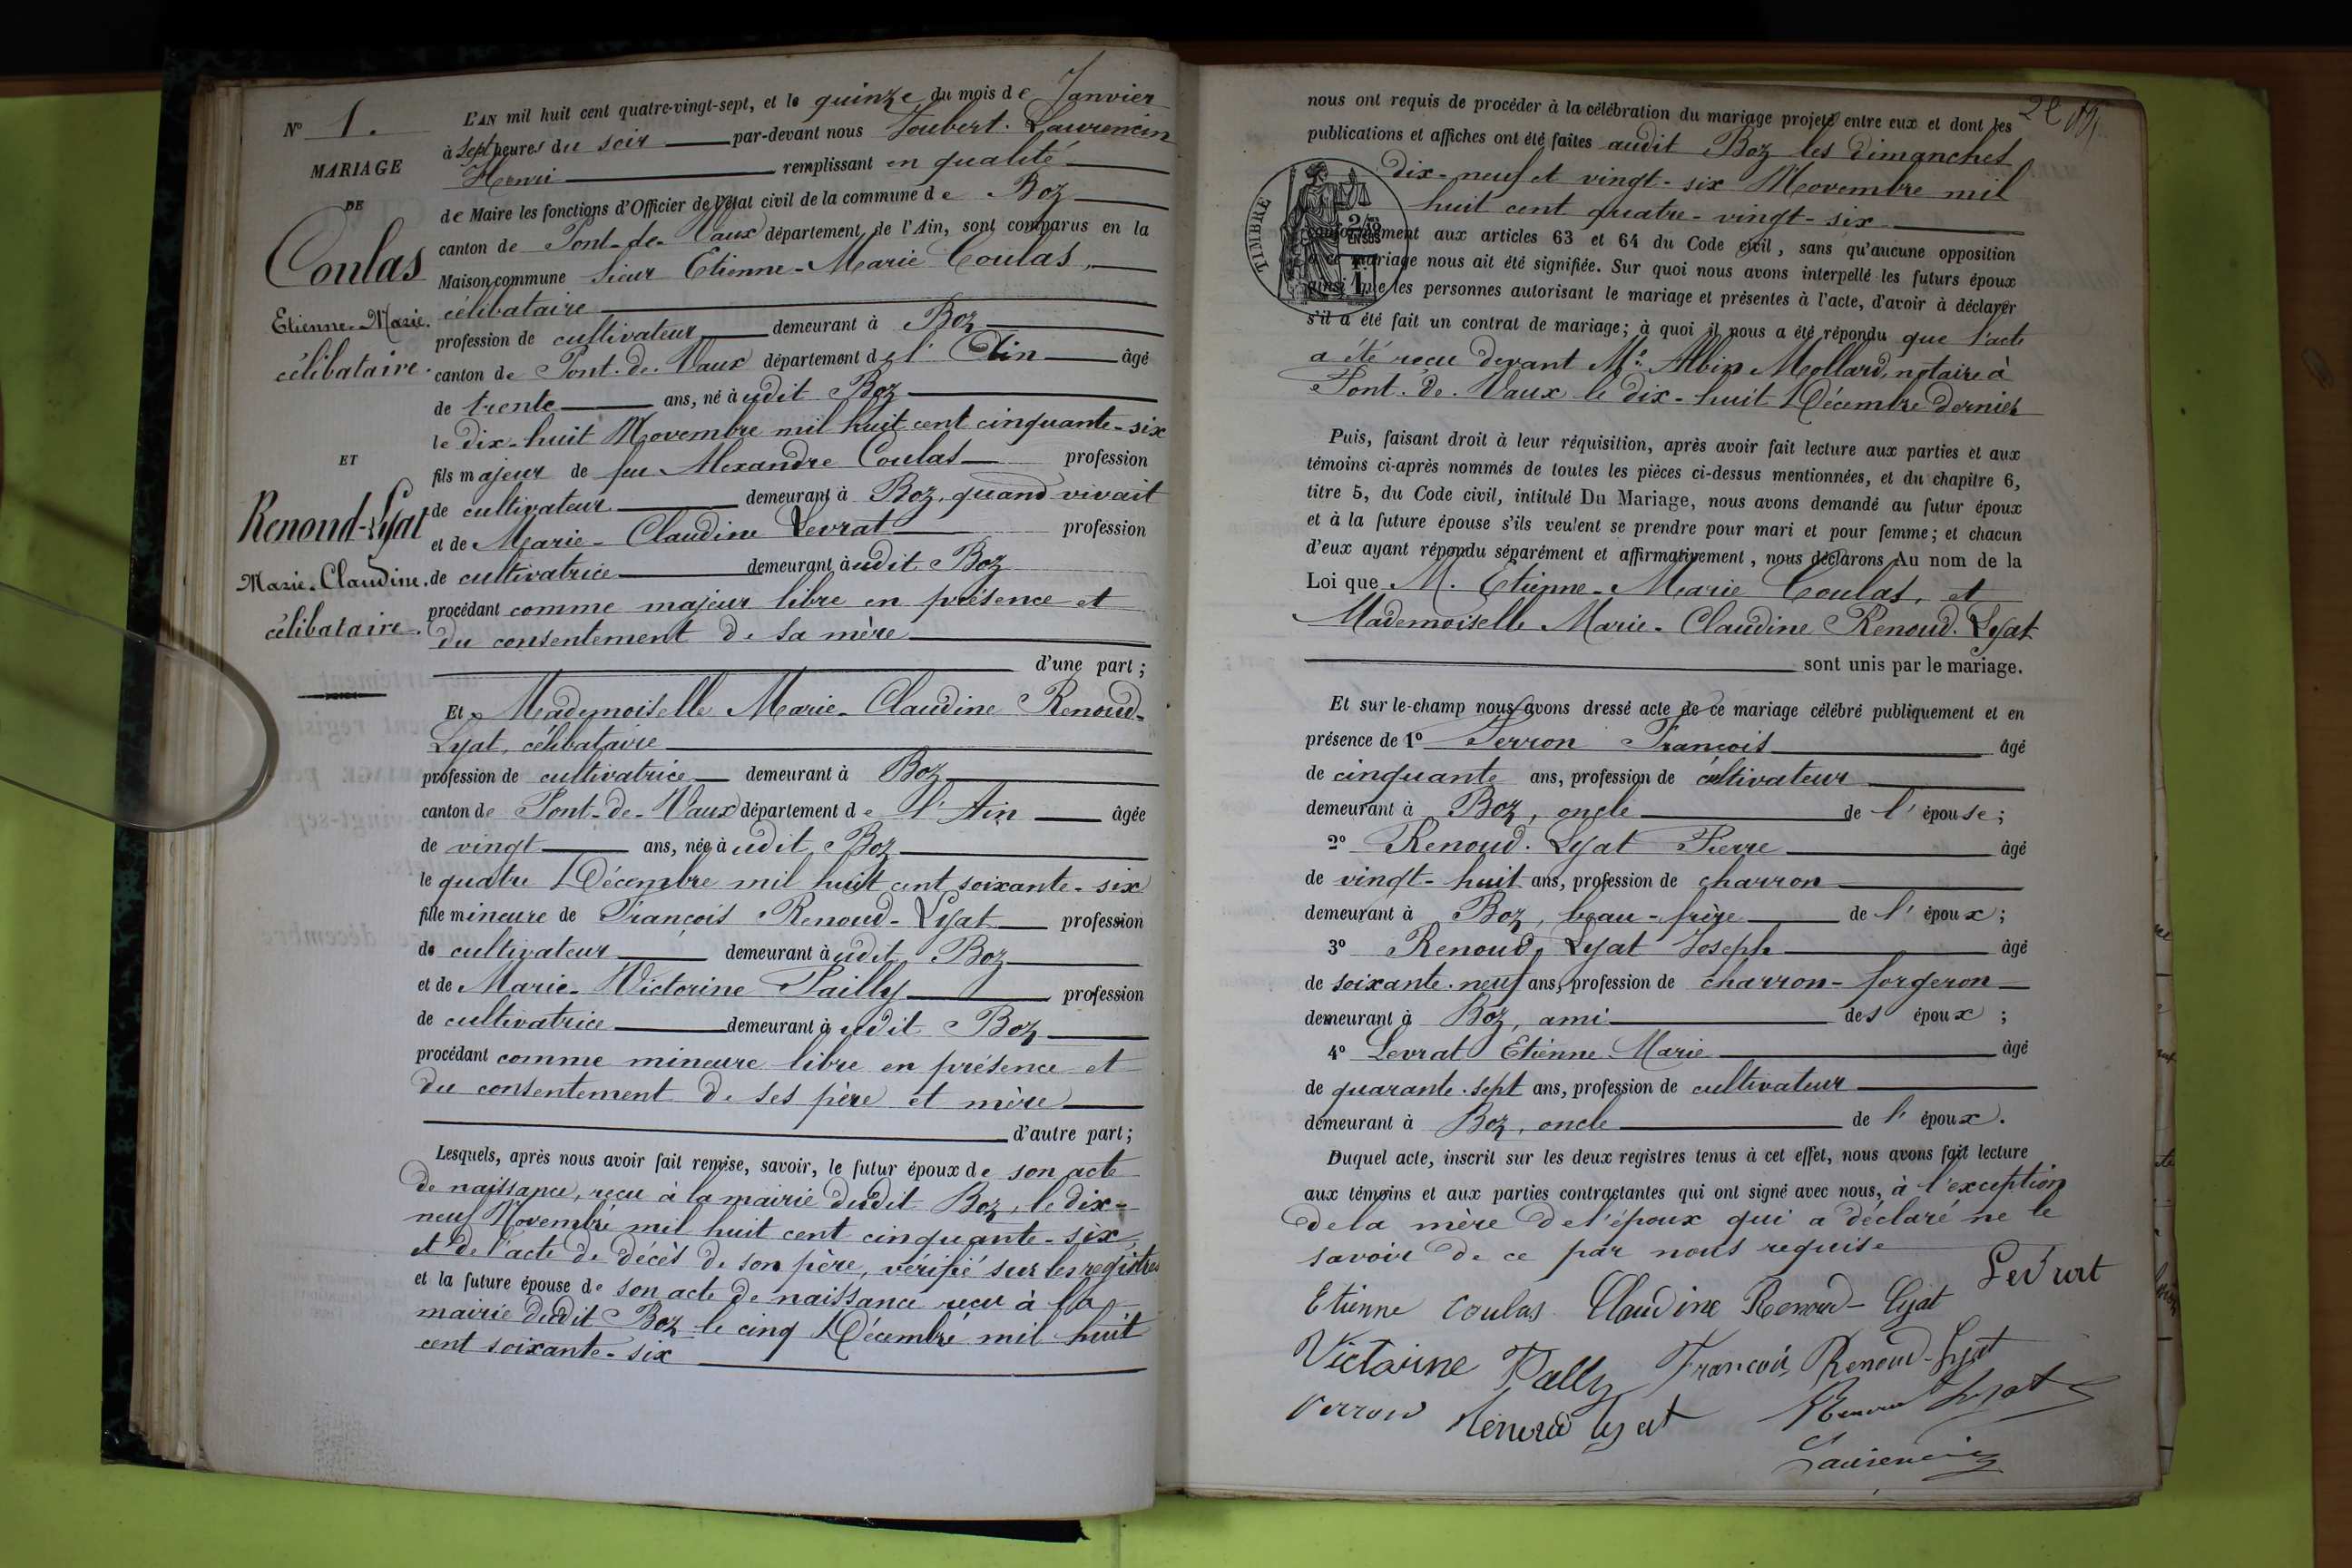 N° 1.
MARIAGE
DE
Coulas
Etienne-Marie.
célibataire.
ET
Renoud-Lyat
Marie-Claudine.
célibataire.
L'AN mil huit cent quatre-vingt-sept, et le quinze du mois de Janvier
à sept heures du soir par-devant nous Joubert-Laurencin
Henri remplissant en qualité
de Maire les fonctions d'Officier de l'état civil de la commune de Boz
canton de Pont-de-Vaux département de l'Ain, sont comparus en la
Maison commune sieur Etienne-Marie Coulas,
célibataire
profession de cultivateur demeurant à Boz
canton de Pont-de-Vaux département de l'Ain âgé
de trente ans, né audit Boz
le dix-huit Novembre mil huit cent cinquante-six
fils majeur de feu Alexandre Coulas profession
de cultivateur demeurant à Boz, quand vivait
et de Marie-Claudine Levrat profession
de cultivatrice demeurant audit Boz
procédant comme majeur libre en présence et
du consentement de sa mère
d'une part;
Et Mademoiselle Marie-Claudine Renoud-
Lyat, célibataire
profession de cultivatrice demeurant à Boz
canton de Pont-de-Vaux département de l'Ain âgée
de vingt ans, née audit Boz
le quatre Décembre mil huit cent soixante-six
fille mineure de François Renoud-Lyat profession
de cultivateur demeurant audit Boz
et de Marie-Victorine Pailly profession
de cultivatrice demeurant audit Boz
procédant comme mineure libre en présence et
du consentement de ses père et mère
d'autre part;
Lesquels, après nous avoir fait remise, savoir, le futur époux de son acte
de naissance, reçu à la mairie dudit Boz, le dix-
neuf Novembre mil huit cent cinquante-six,
et de l'acte de décès de son père, vérifié sur les registres
et la future épouse de son acte de naissance reçu à la
mairie dudit Boz le cinq Décembre mil huit
cent soixante-six
nous ont requis de procéder à la célébration du mariage projeté entre eux et dont les
publications et affiches ont été faites audit Boz les dimanches
dix-neuf et vingt-six Novembre mil
huit cent quatre-vingt-six
TIMBRE
2/10 EN SUS
conformément aux articles 63 et 64 du Code civil, sans qu'aucune opposition
à ce mariage nous ait été signifiée. Sur quoi nous avons interpellé les futurs époux
ainsi que les personnes autorisant le mariage et présentes à l'acte, d'avoir à déclarer
s'il a été fait un contrat de mariage; à quoi il nous a été répondu que l'acte
a été reçu devant Me Albin Mollard, notaire à
Pont-de-Vaux le dix-huit Décembre dernier
Puis, faisant droit à leur réquisition, après avoir fait lecture aux parties et aux
témoins ci-après nommés de toutes les pièces ci-dessus mentionnées, et du chapitre 6,
titre 5, du Code civil, intitulé Du Mariage, nous avons demandé au futur époux
et à la future épouse s'ils veulent se prendre pour mari et pour femme; et chacun
d'eux ayant répondu séparément et affirmativement, nous déclarons Au nom de la
Loi que M. Etienne-Marie Coulas, et
Mademoiselle Marie-Claudine Renoud-Lyat
sont unis par le mariage.
Et sur-le-champ nous avons dressé acte de ce mariage célébré publiquement et en
présence de 1° Perron François âgé
de cinquante ans, profession de cultivateur
demeurant à Boz, oncle de l'épouse;
2° Renoud-Lyat Pierre âgé
de vingt-huit ans, profession de charron
demeurant à Boz, beau-frère de l'époux;
3° Renoud-Lyat Joseph âgé
de soixante-neuf ans, profession de charron-forgeron
demeurant à Boz, ami des époux;
4° Levrat Etienne-Marie âgé
de quarante-sept ans, profession de cultivateur
demeurant à Boz, oncle de l'époux.
Duquel acte, inscrit sur les deux registres tenus à cet effet, nous avons fait lecture
aux témoins et aux parties contractantes qui ont signé avec nous, à l'exception
de la mère de l'époux qui a déclaré ne le
savoir de ce par nous requise
Etienne Coulas Claudine Renoud-Lyat Levrat
Victorine Pally François Renoud-Lyat
Perron Renoud Lyat Renoud Lyat
Laurencin